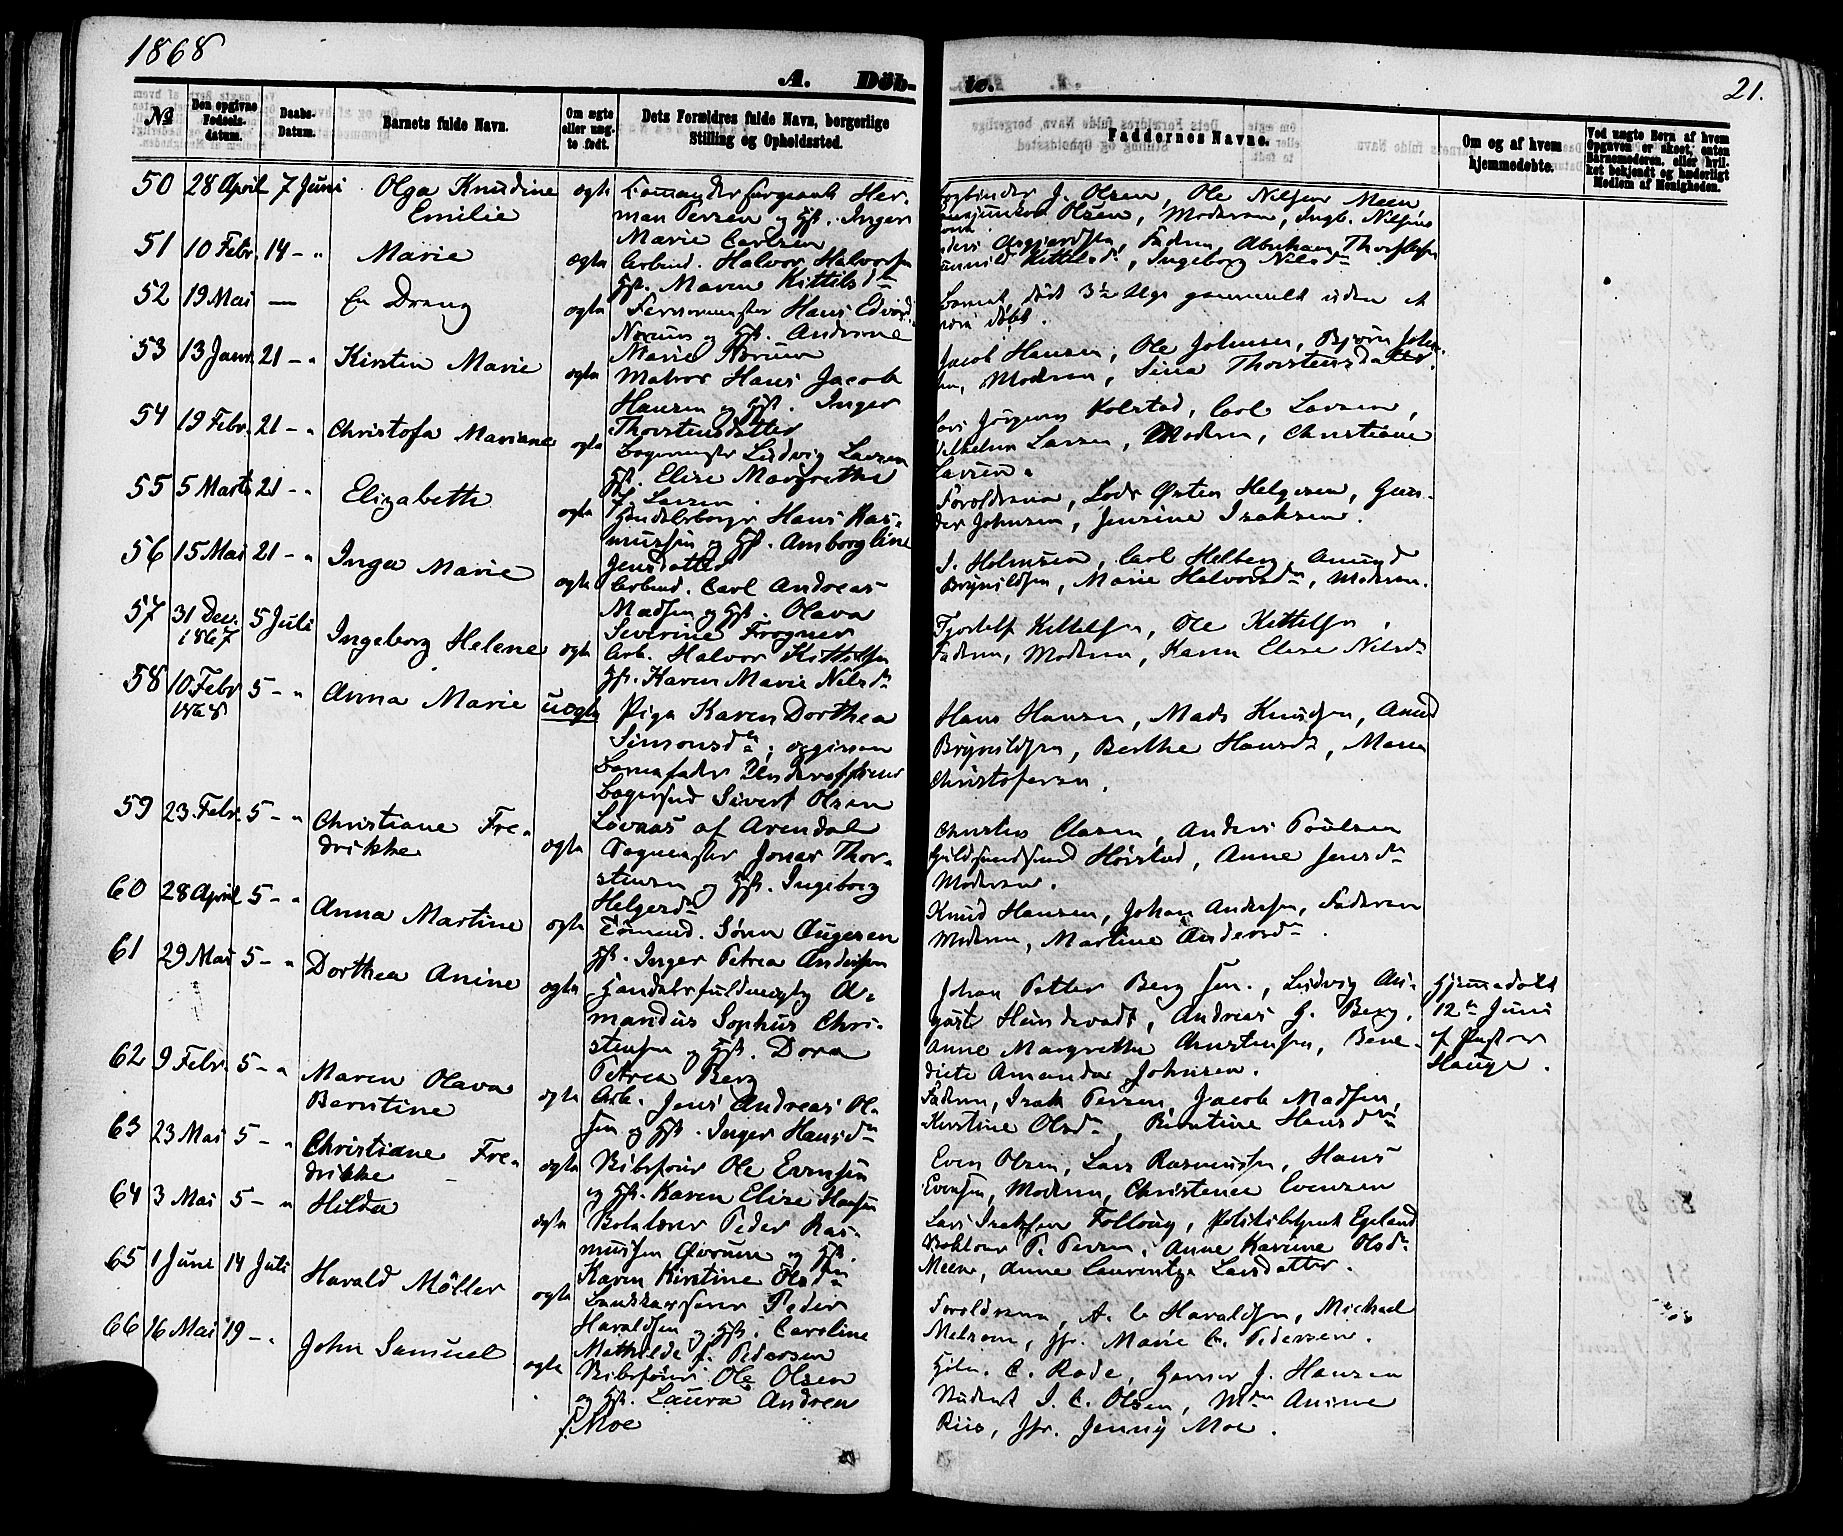 1868
A. Döb-
te.
21.
№
Den opgivne Fødsels-datum.
Daabs-Datum.
Barnets fulde Navn.
Om ægte eller uæg-te født.
Dets Forældres fulde Navn, borgerlige Stilling og Opholdssted.
Faddernes Navne.
Om og af hvem hjemmedøbte.
Ved uægte Børn af hvem Opgaven er skeet, enten Barnemoderen, eller hvil-ket bekjendt og hæderligt Medlem af Menigheden.
50 28 April 7 Juni Olga Knudine
Emilie
ægte
Her-
man Persen og Hst. Inger
Marie Carlsen
J. Olsen, Ole Nilsen Meen
Olsen, Moderen, Ingb. Nilsens
51 10 Febr. 14 - " Marie
ægte
Arbmd. Halvor Halvorsen
Hst. Maren Kittilsd.
Faderen, Abraham
Kittilsd., Ingeborg Nilsd.
52 19 Mai — En Dreng
ægte
Hans
Norum og Hst. Andrine
Marie Norum
Barnet født 3½ Uge gammelt uden at
døbt.
53 13 Janr. 21 - " Kirsten Marie
ægte
Matros Hans Jacob
Hansen og Hst. Inger
Thorstensdatter
Jacob Hansen, Ole Johnsen, Bjørn John-
sen, Moderen, Sina Thorstensdatter.
54 19 Febr. 21 - " Christofa Mariane
ægte
Bagermester Ludvig Larsen
Hst. Elise Margrethe
f. Larsen.
Jørgen Kolstad, Carl Larsen,
Vilhelm Larsen, Moderen, Christiane
Larsen.
55 5 Marts 21 - " Elizabeth
ægte
Handelsborgr Hans Ras-
mussen og Hst. Amborgline
Jensdatter
Forældrene, Lods Østen Helgesen, Gun-
der Johnsen, Jensine Isaksen.
56 15 Mai 21 - " Inga Marie
ægte
Arbmd. Carl Andreas
Madsen og Hst. Olava
Severine Frogner
J. Holmsen, Carl Helberg, Amund
Brynildsen, Marie Halvorsd., Moderen.
57 31 Dec. 5 Juli Ingeborg Helene
1867
ægte
Arb. Halvor Kittilsen
Hst. Karen Marie Nilsd.
Kittelsen, Ole Kittelsen,
Faderen, Moderen, Karen Elise Nilsd.
58 10 Febr 5 - " Anna Marie
1868
uægte
Pige Karen Dorthea
Simonsd., opgiven
Barnefader Underofficer
Bagersvd Sivert Olsen
Løvaas af Arendal
Hans Hansen, Mads Knudsen, Amd
Brynildsen, Berthe Hansd., Maren
Christofersen.
59 23 Febr. 5 - " Christiane Fre-
drikke
ægte
Jonas Thor-
stensen og Hst. Ingeborg
Helgesd.
Clasen, Anders Poulsen
Høistad, Anne Jensd.
Moderen.
60 28 April 5 - " Anna Martine
ægte
Tømmd. Søren Augesen
Hst. Inger Petrea Andersen
Knud Hansen, Johan Andersen, Faderen
Moderen, Martine Andersd.
61 29 Mai 5 - " Dorthea Anine
ægte
Handelsfuldmægtig A-
mandus Sophus Chri-
stensen og Hst. Dora
Petrea Berg
Johan Petter Berg sen., Ludvig Au-
gust Hundevadt, Andreas H. Berg,
Anne Margrethe Christensen, Bene-
dicte Amanda Johnsen.
Hjemmedøbt
12te Juni
af Pastor
Hauge.
62 9 Febr. 5 - " Maren Olava
Berntine
ægte
Arb. Jens Andreas Ol-
sen og Hst. Inger Hansd.
Faderen, Isak Persen, Jacob Madsen,
Kirstine Olsd., Berntine Hansd.
63 23 Mai 5 - " Christiane Fre-
drikke
ægte
Skibsfører Ole Evensen
og Hst. Karen Elise Hansen
Even Olsen, Lars Rasmussen, Hans
Evensen, Moderen, Christence Evensen
64 3 Mai 5 - " Hilda
ægte
Peder Ras-
mussen og Hst.
Karen Kirstine Olsd.
Lars Isaksen Follaug, Politibetjent Egeland
P. Persen, Anne Karine Olsd.
Meen, Anne Laurentze Larsdatter.
65 1 Juni 14 Juli Harald Möller
ægte
Peder
Haraldsen og Hst. Caroline
Mathilde f. Pedersen
Forældrene, A. C. Haraldsen, Michael
Melsom, Jfr. Marie C. Pedersen.
66 16 Mai 19 - " John Samuel
ægte
Skibsfører Ole Olsen
og Hst. Laura Andrea
f. Moe
C. Rode, J. Hansen
Student J. C. Olsen, Mdm Anine
Riis, Jfr. Jenny Moe.